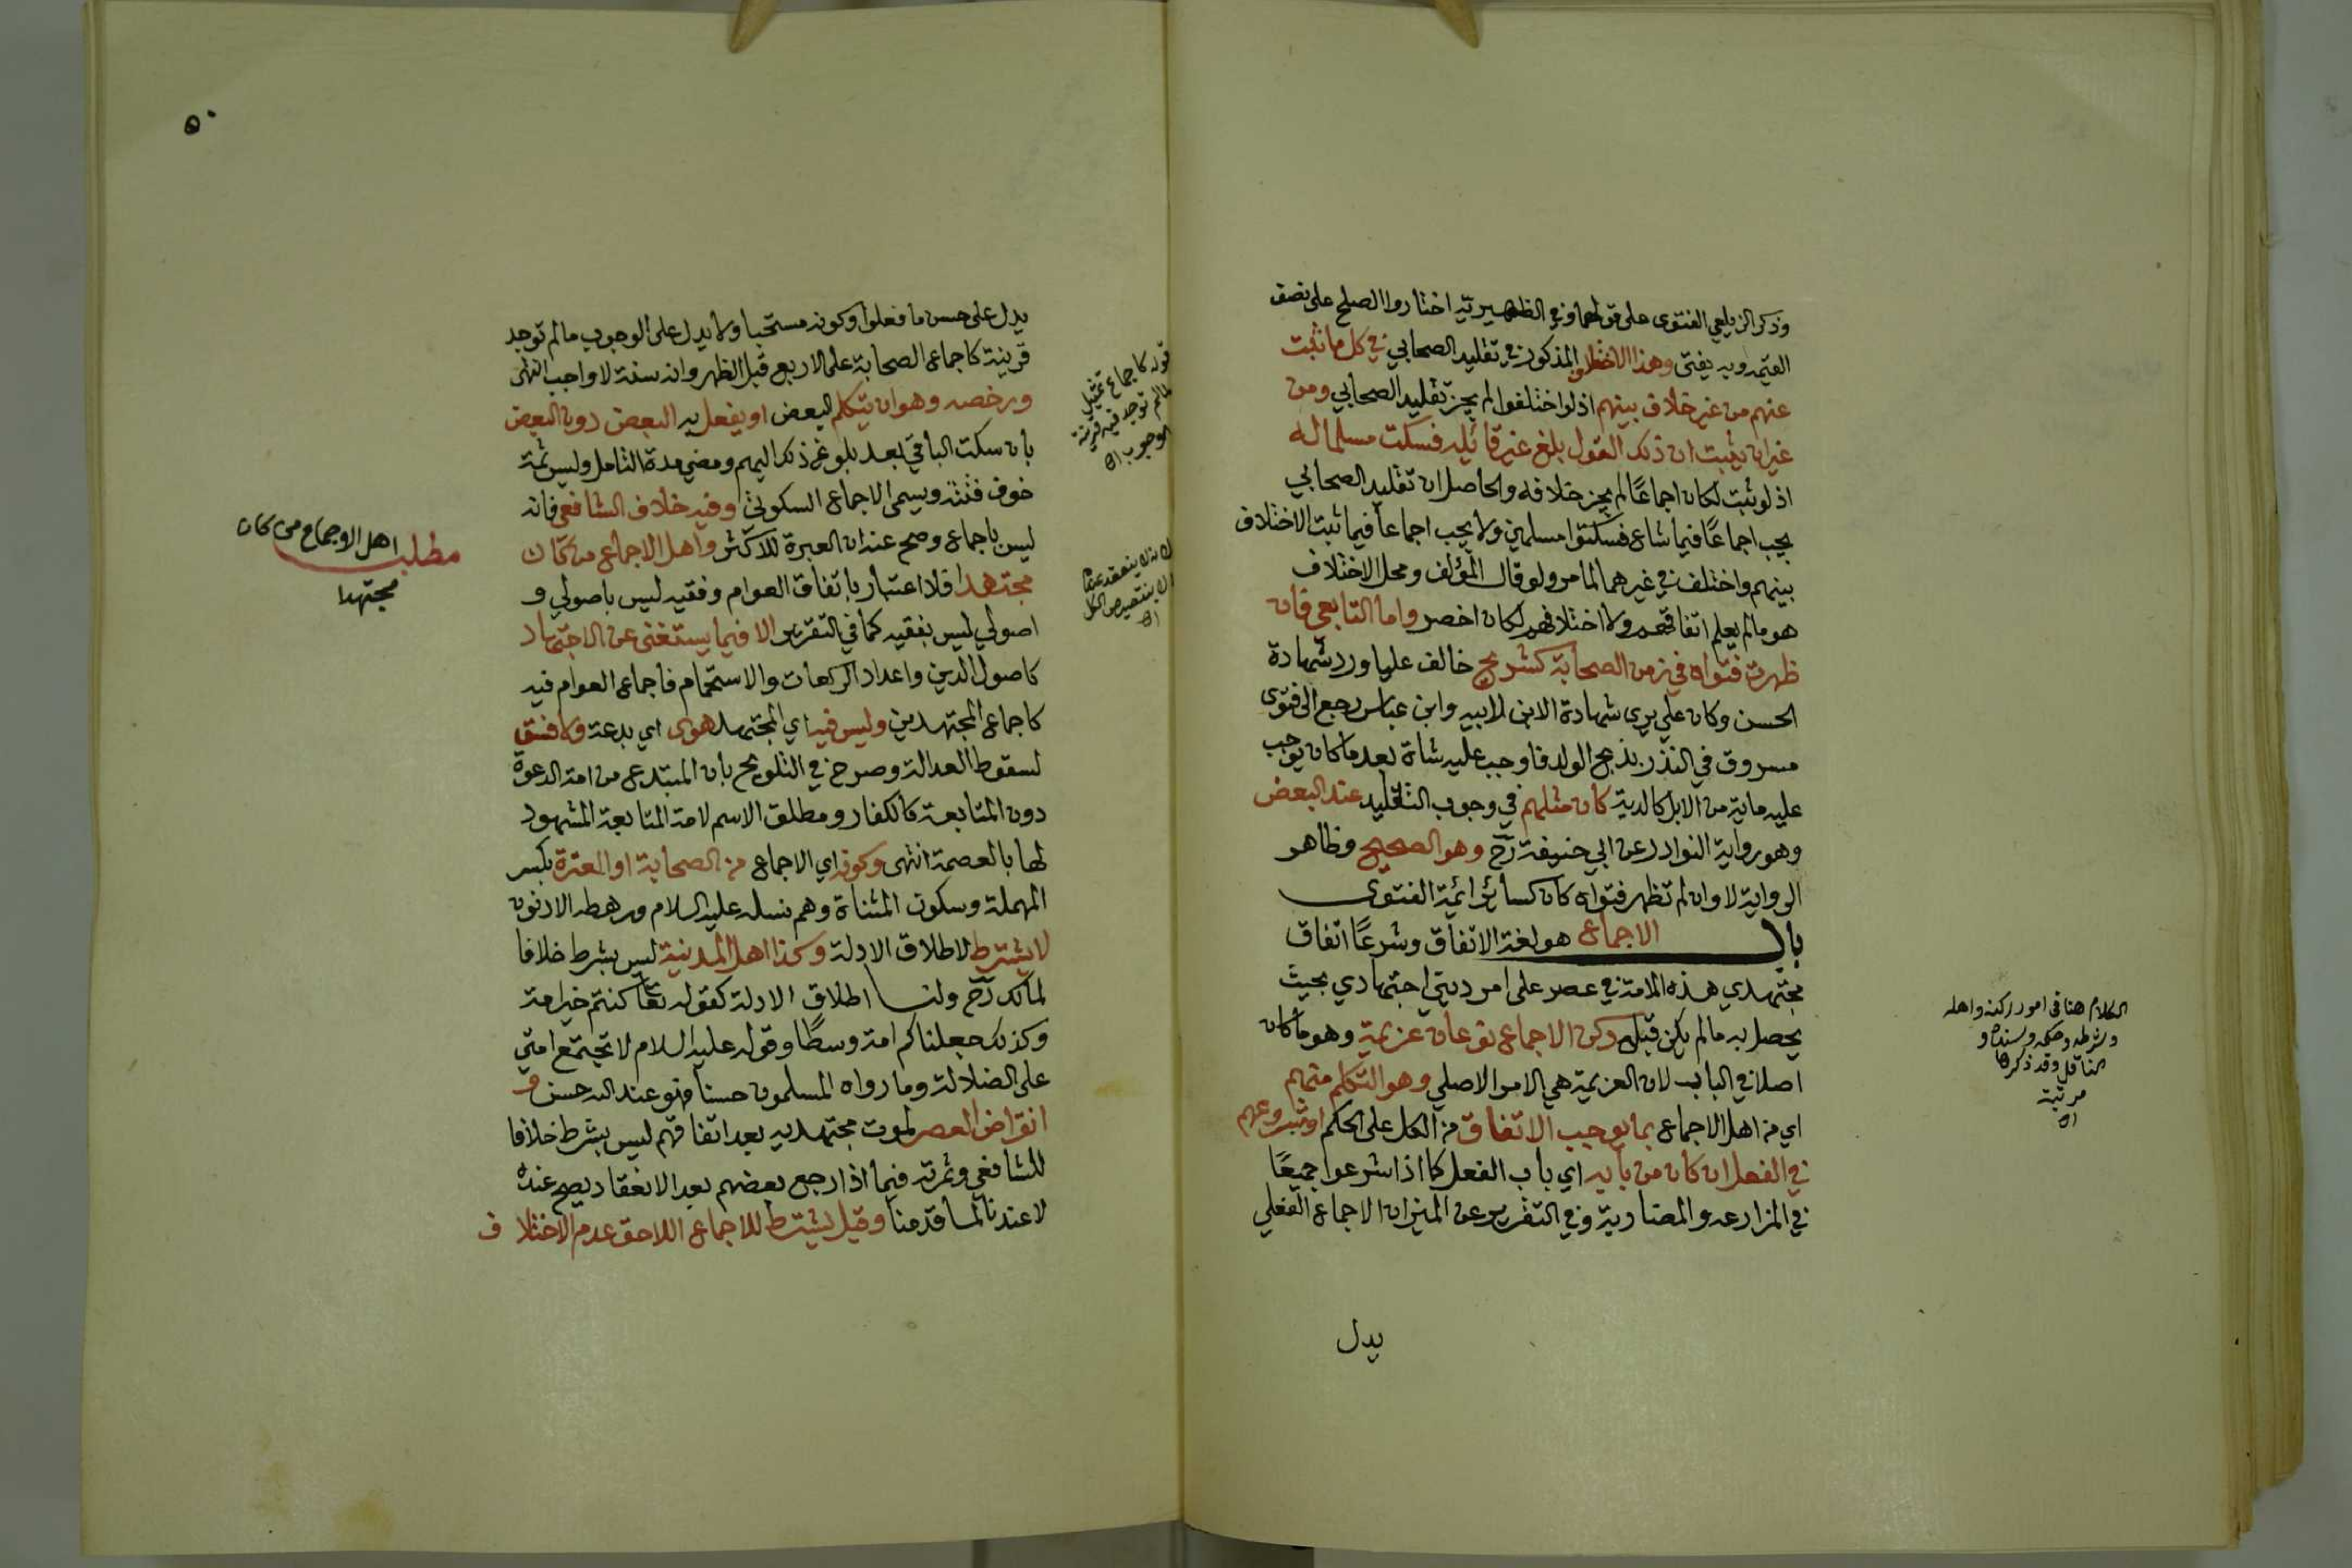 وذكر الزيلعي الفتوى على قولهما وفي الظهيرية اختاروا الصلح على نصف
القيمة وبه يفتى وهذا الاختلاف المذكور في تقليد الصحابي في كل ما ثبت
عنهم من غير خلاف بينهم اذ لو اختلفوا لم يجز تقليد الصحابي ومن
غير ان يثبت ان ذلك القول بلغ غير قائله فسكت مسلما له
اذ لو ثبت لكان اجماعًا لم يجز خلافه والحاصل ان تقليد الصحابي
يجب اجماعًا فيما شاع فسكتوا مسلمين ولا يجب اجماعا فيما ثبت الاختلاف
بينهم واختلف في غيرهما لما مر ولو قال المؤلف ومحل الاختلاف
هو ما لم يعلم اتفاقهم ولا اختلافهم لكان اخصر واما التابعي فان
ظهرت فتواه في زمن الصحابة كشريح خالف عليا ورد شهادة
الحسن وكان علي يرى شهادة الابن لابيه وابن عباس رجع الى فتوى
مسروق في النذر بذبح الولد فاوجب عليه شاة بعد ما كان يوجب
عليه ماية من الابل كالدية كان مثلهم في وجوب التقليد عند البعض
وهو رواية النوادر عن ابي حنيفة رح وهو الصحيح وظاهر
الرواية لا وان لم تظهر فتواه كان كسائر ائمة الفتوى
باب الاجماع هو لغة الاتفاق وشرعًا اتفاق
مجتهدي هذه الامة في عصر على امر ديني اجتهادي بحيث
يحصل به ما لم يكن قبل ركن الاجماع نوعان عزيمة وهو ما كان
اصلا في الباب لان العزيمة هي الامر الاصلي وهو التكلم منهم
اي من اهل الاجماع بما يوجب الاتفاق من الكل على الحكم او شروعهم
في الفعل ان كان من بابه اي باب الفعل كما اذا شرعوا جميعًا
في المزارعة والمضاربة وفي التقرير عن الميزان الاجماع الفعلي
يدل
الكلام هنا في امور ركنه واهله
وشرطه وحكمه وسنده و
الناقل وقد ذكرها
مرتبة
اه
٥٠
يدل على حسن ما فعلوا وكونه مستحبا ولا يدل على الوجوب ما لم توجد
قرينة كاجماع الصحابة على الاربع قبل الظهر وانه سنة لا واجب انتهى
ورخصه وهو ان يتكلم البعض او يفعل به البعض دون البعض
بان سكت الباقي بعد بلوغ ذلك اليهم ومضي مدة التامل وليس ثمة
خوف فتنة ويسمى الاجماع السكوتي وفيه خلاف الشافعي فانه
ليس باجماع وصح عنه ان العبرة للاكثر واهل الاجماع من كان
مجتهدا فلا اعتبار باتفاق العوام وفقيه ليس باصولي و
اصولي ليس بفقيه كما في التقرير الا فيما يستغنى عن الاجتهاد
كاصول الدين واعداد الركعات والاستحمام فاجماع العوام فيه
كاجماع المجتهدين وليس فيه اي المجتهد هوى اي بدعة ولا فسق
لسقوط العدالة وصرح في التلويح بان المبتدع من امة الدعوة
دون المتابعة كالكفار ومطلق الاسم لامة المتابعة المشهود
لها بالعصمة انتهى وكونه اي الاجماع من الصحابة او العترة بكسر
المهملة وسكون المثناة وهم نسله عليه السلام ورهطه الادنون
لا يشترط لاطلاق الادلة وكذا اهل المدينة ليس بشرط خلافا
لمالك رح ولنا اطلاق الادلة كقوله تعا كنتم خير امة
وكذلك جعلناكم امة وسطًا وقوله عليه السلام لا تجتمع امتي
على الضلالة وما رواه المسلمون حسنا فهو عند الله حسن و
انقراض العصر لموت مجتهديه بعد اتفاقهم ليس بشرط خلافا
للشافعي وثمرته فيما اذا رجع بعضهم بعد الانعقاد يصح عنده
لا عندنا لما قدمنا وقيل يشترط للاجماع اللاحق عدم الاختلاف
قوله كاجماع تمثيل
لما لم توجد فيه قرينة
الوجوب اه
مطلب اهل الاجماع من كان
مجتهدا